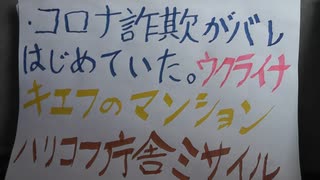 ・コロナ詐欺がバレ
はじめていた。ウクライナ
キエフのマンション
ハリコフ庁舎ミサイル